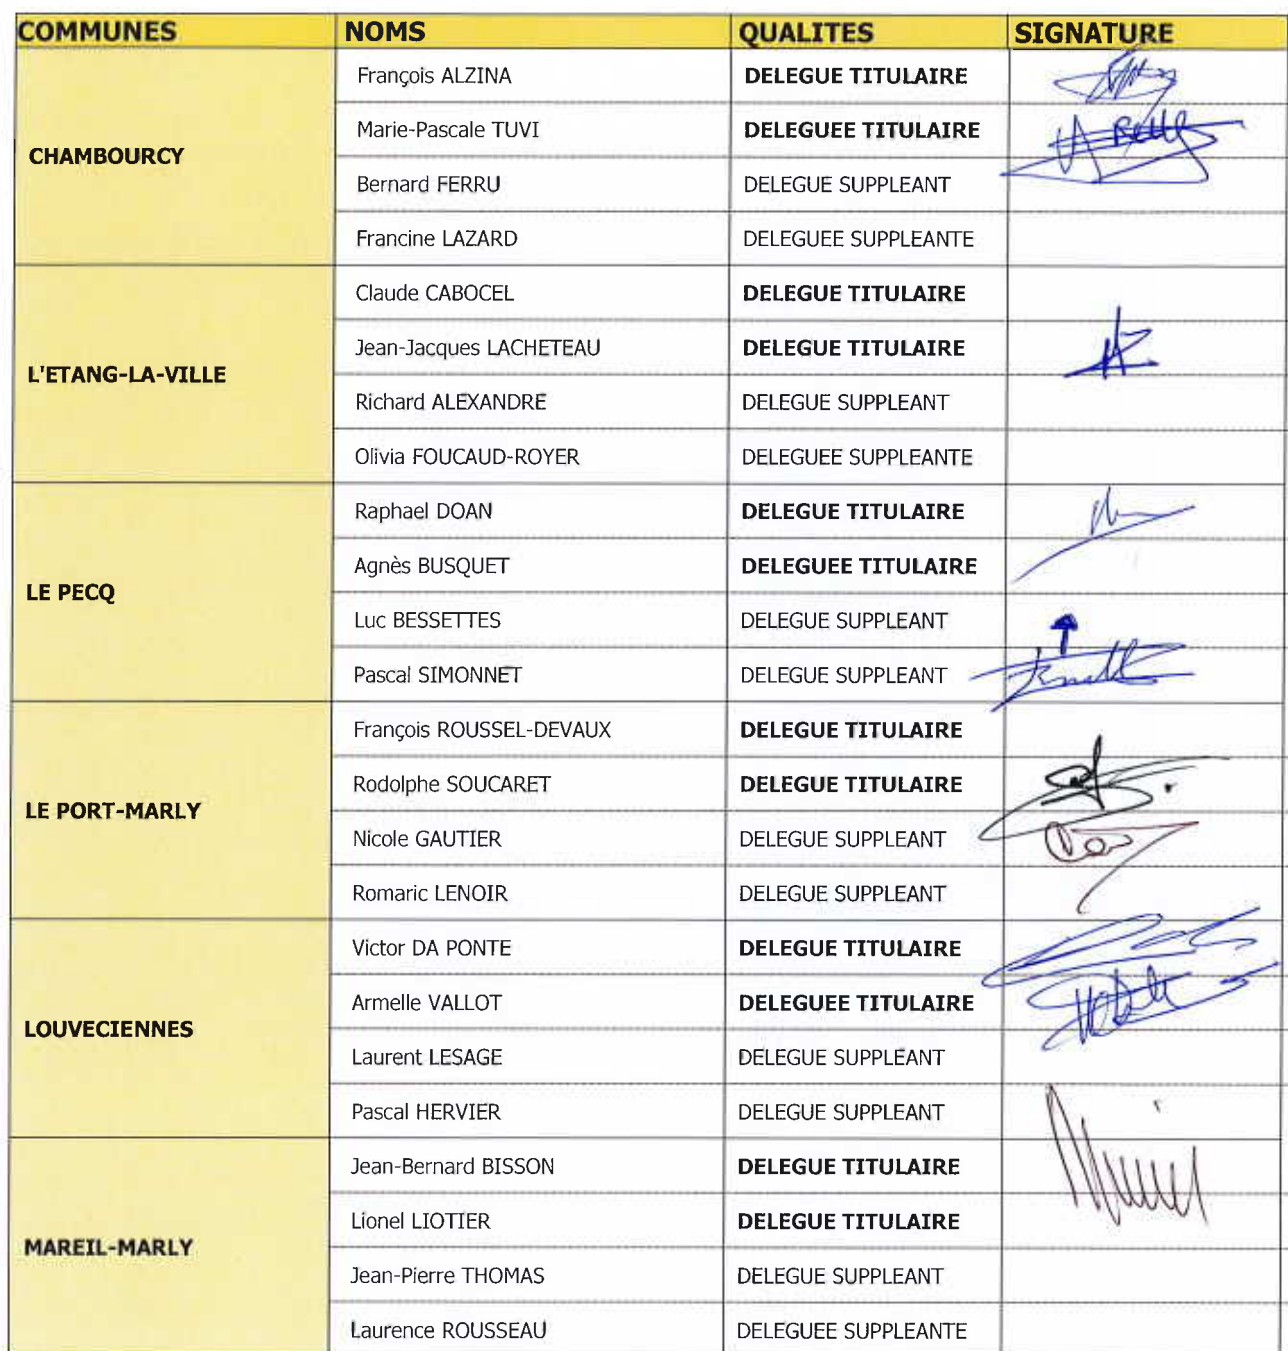 COMMUNES NOMS QUALITES SIGNATURE
CHAMBOURCY
François ALZINA DELEGUE TITULAIRE
Marie-Pascale TUVI DELEGUEE TITULAIRE
Bernard FERRU DELEGUE SUPPLEANT
Francine LAZARD DELEGUEE SUPPLEANTE
L'ETANG-LA-VILLE
Claude CABOCEL DELEGUE TITULAIRE
Jean-Jacques LACHETEAU DELEGUE TITULAIRE
Richard ALEXANDRE DELEGUE SUPPLEANT
Olivia FOUCAUD-ROYER DELEGUEE SUPPLEANTE
LE PECQ
Raphael DOAN DELEGUE TITULAIRE
Agnès BUSQUET DELEGUEE TITULAIRE
Luc BESSETTES DELEGUE SUPPLEANT
Pascal SIMONNET DELEGUE SUPPLEANT
LE PORT-MARLY
François ROUSSEL-DEVAUX DELEGUE TITULAIRE
Rodolphe SOUCARET DELEGUE TITULAIRE
Nicole GAUTIER DELEGUE SUPPLEANT
Romaric LENOIR DELEGUE SUPPLEANT
LOUVECIENNES
Victor DA PONTE DELEGUE TITULAIRE
Armelle VALLOT DELEGUEE TITULAIRE
Laurent LESAGE DELEGUE SUPPLEANT
Pascal HERVIER DELEGUE SUPPLEANT
MAREIL-MARLY
Jean-Bernard BISSON DELEGUE TITULAIRE
Lionel LIOTIER DELEGUE TITULAIRE
Jean-Pierre THOMAS DELEGUE SUPPLEANT
Laurence ROUSSEAU DELEGUEE SUPPLEANTE